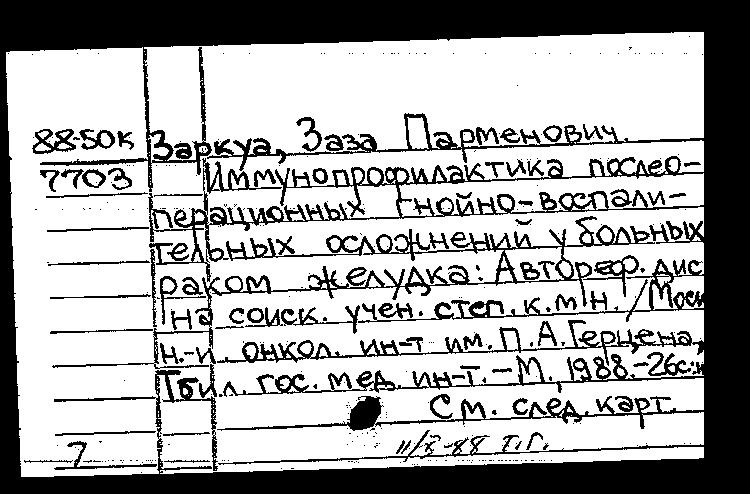 88-50к Заркуа, Заза Парменович.
7703 Иммунопрофилактика послео-
перационных гнойно-воспали-
тельных осложнений у больных
раком желудка: Автореф. дис
на соиск. учен. степ. к.м.н. / Моск
н.-и. онкол. ин-т им. П.А.Герцена,
Тбил. гос. мед. ин-т. - М., 1988. - 26с.:
См. след. карт.
7 11/X-88 Т.Г.